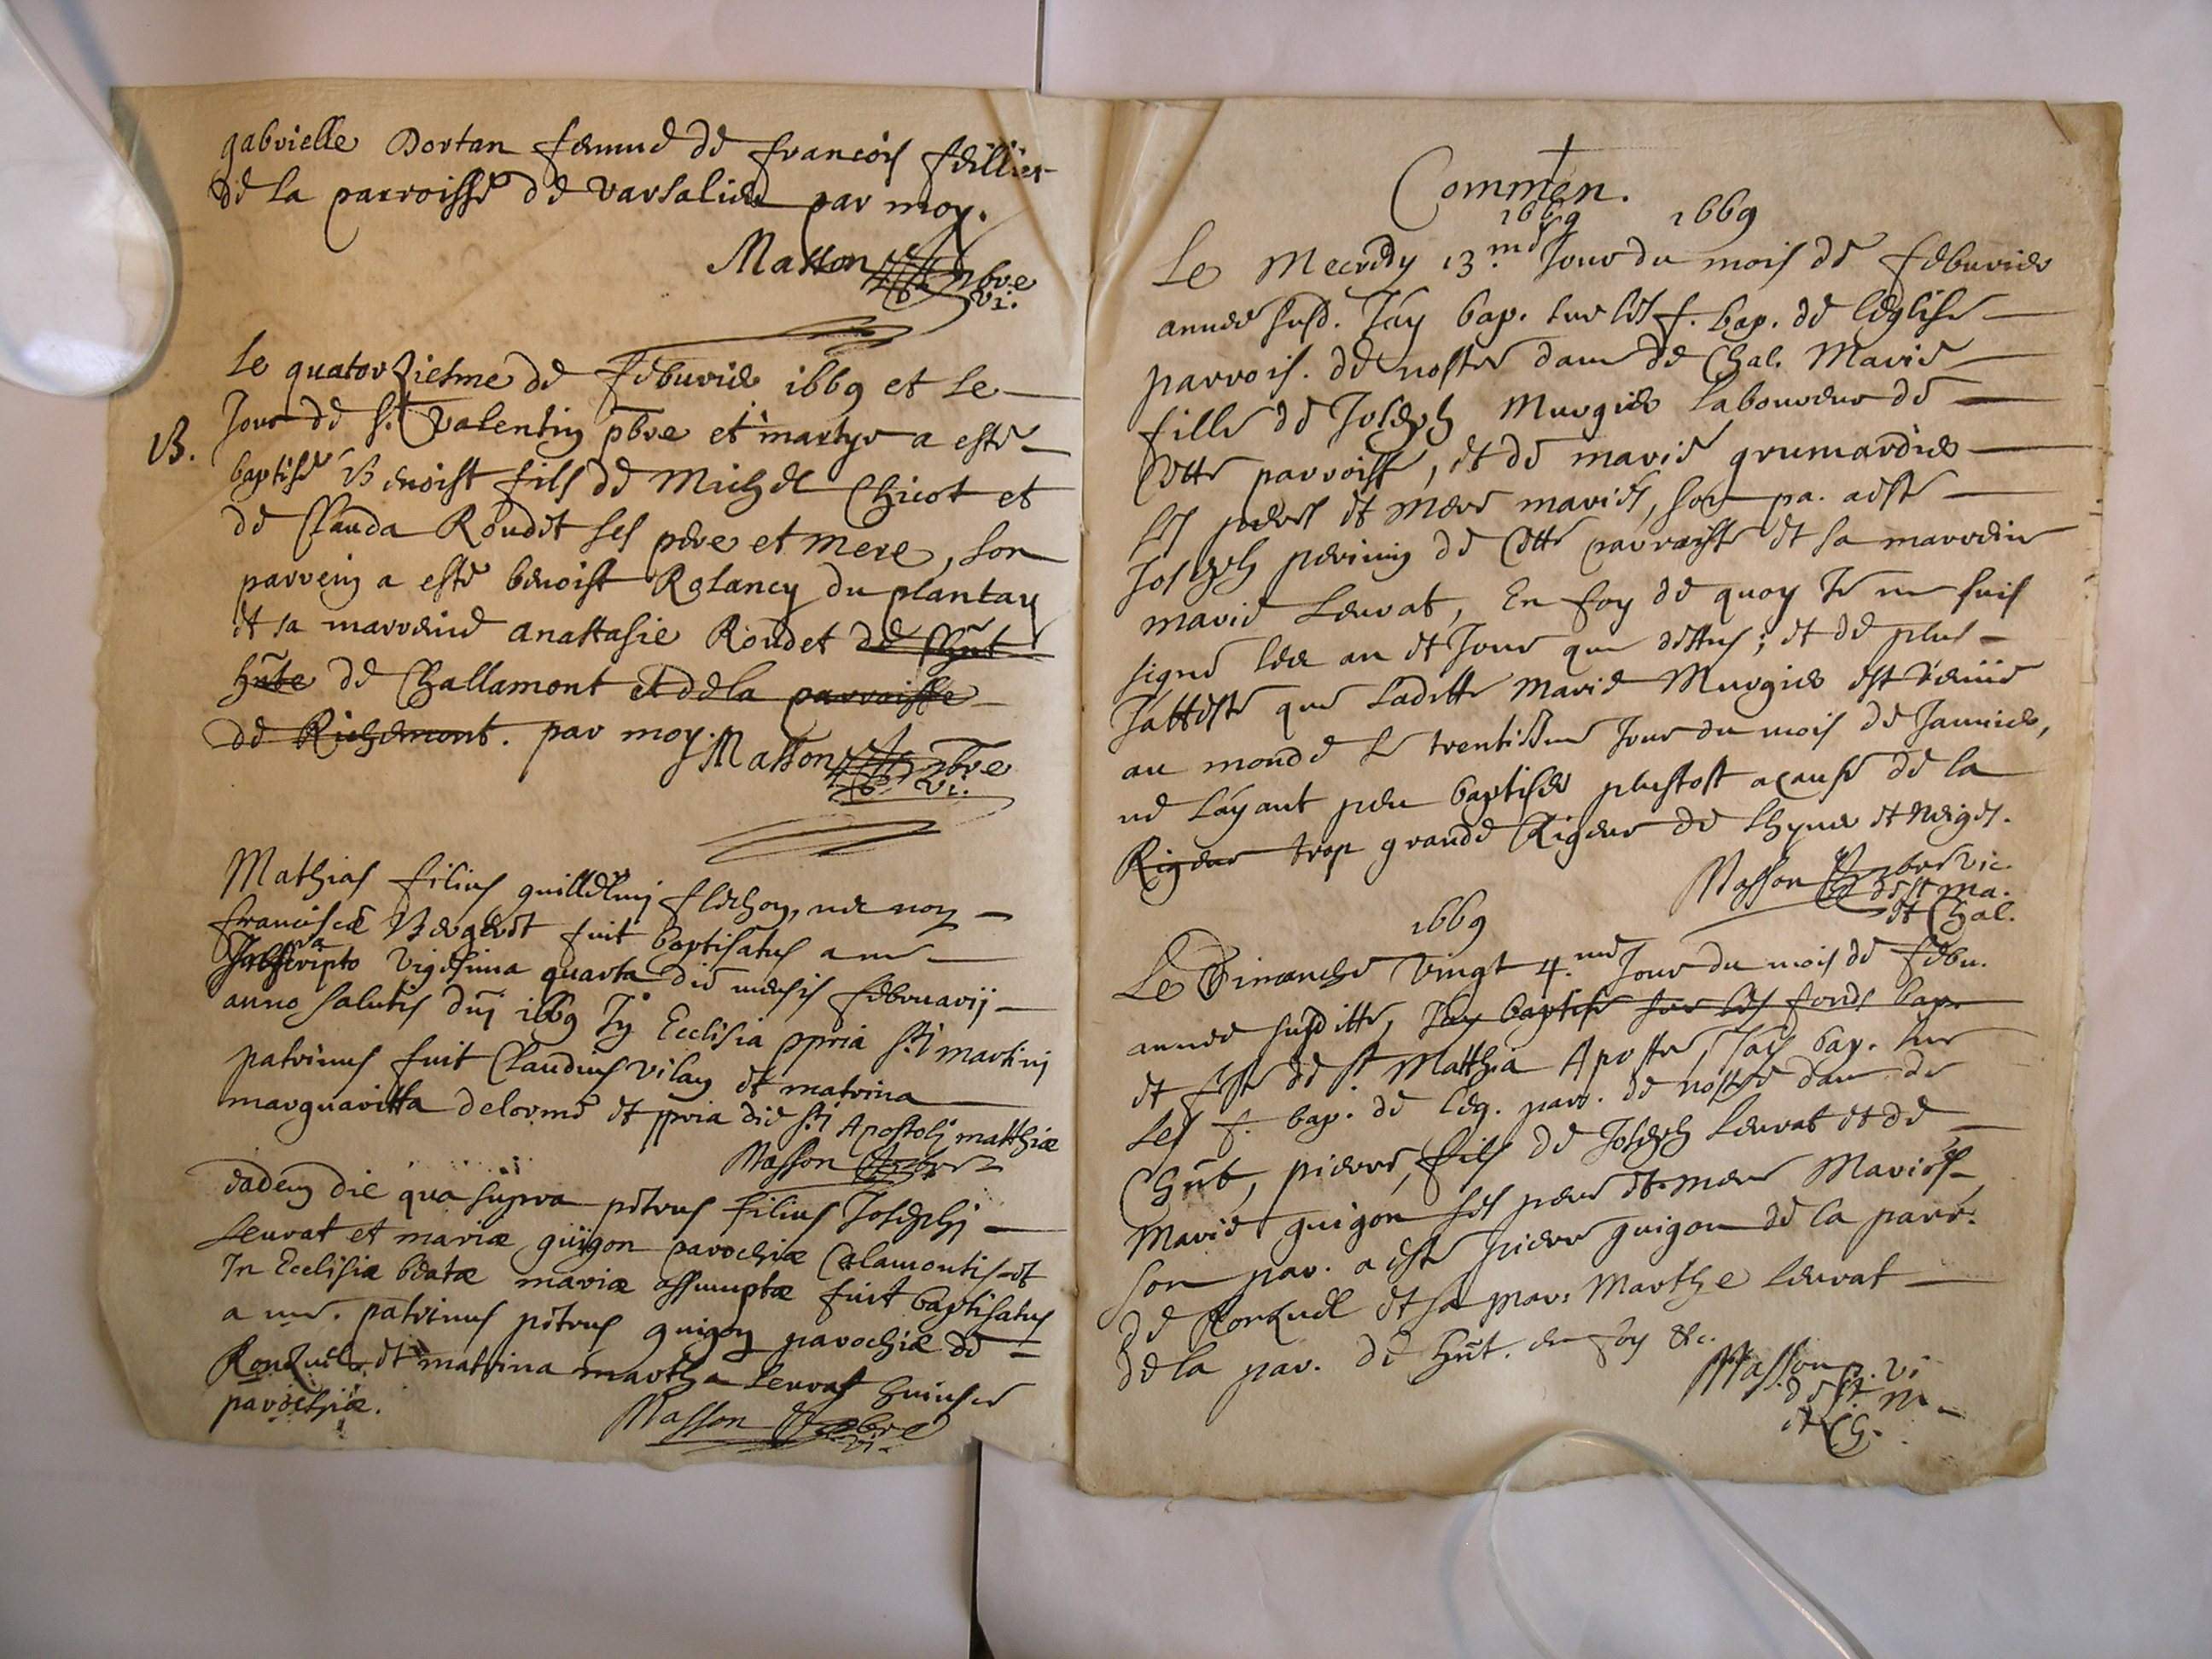 gabrielle Dortan femme de françois feillier
de la parroisse de varsalieu par moy.
Masson pbre
vi.
Le quatorziesme de febuvier 1669 et le
B.
Jour de St. Valentin pbre et martyr a esté
baptisé Benoist fils de Michel Chicot et
de Clauda Roudet ses pere et mere, son
parrein a esté benoist Rolancy du plantay
et sa marreine anastasie Roudet de Chñt
hñte de Challamont et de la parroisse
de Richemont. par moy.
Masson pbre
vi.
Mathias filius guillelmi flechon, nec non
franciscæ Bergeret fuit baptisatus a me
vigesima quarta die mensis februarij
anno salutis dñi 1669 In Ecclesia ppria Sti martini
patrinus fuit Claudius vilan et matrina
marguaritta delorme et ppria die Sti Apostoli matthiæ
Masson pbre
eadem die qua supra petrus filius Josephi
Leurat et mariæ guigon parochiæ Calamontis et
In Ecclesia beatæ mariæ assumptæ fuit baptisatus
a me. patrinus petrus guigon parochiæ de
Ronzuel et matrina martha Leurat huiusce
parochiæ.
Masson pbre
vi.
Commen.
1669 1669
Le Mecredy 13.me Jour du mois de febuvier
année susd. Jay bap. sur les f. bap. de leglise
parrois. de nostre dame de Chal. Marie
fille de Joseph Murgier laboureur de
Cette parroisse, et de marie grumardier
ses peres et mere mariés, son pa. a esté
Joseph perinin de Cette parroisse et sa marreine
marie Leurat, En foy de quoy Je me suis
signé les an et Jour que dessus; et de plus
Jatteste que ladite Marie Murgier est venüe
au monde le trentiesme Jour du mois de Januier,
ne layant peu baptiser plustost acause de la
Rigeur trop grande Rigeur de lhyver et neiges.
Masson pbre vic.
de St ma.
et Chal.
1669
Le Dimanche vingt 4.me Jour du mois de febu.
année susditte, Jay baptisé sur les fonds bap
et feste de St Matthia Apostre, Jay bap. sur
les f. bap. de leg. parr. de nostre dame de
Chñt, pierre, fils de Joseph Leurat et de
Marie guigon ses pere et mere Mariés
son par. a esté pierre guigon de la parr.
de Ronzuel et sa mar. Marthe Leurat
de la par. de Chñt. en foy &c.
Masson p. vi
de St m
et Ch.